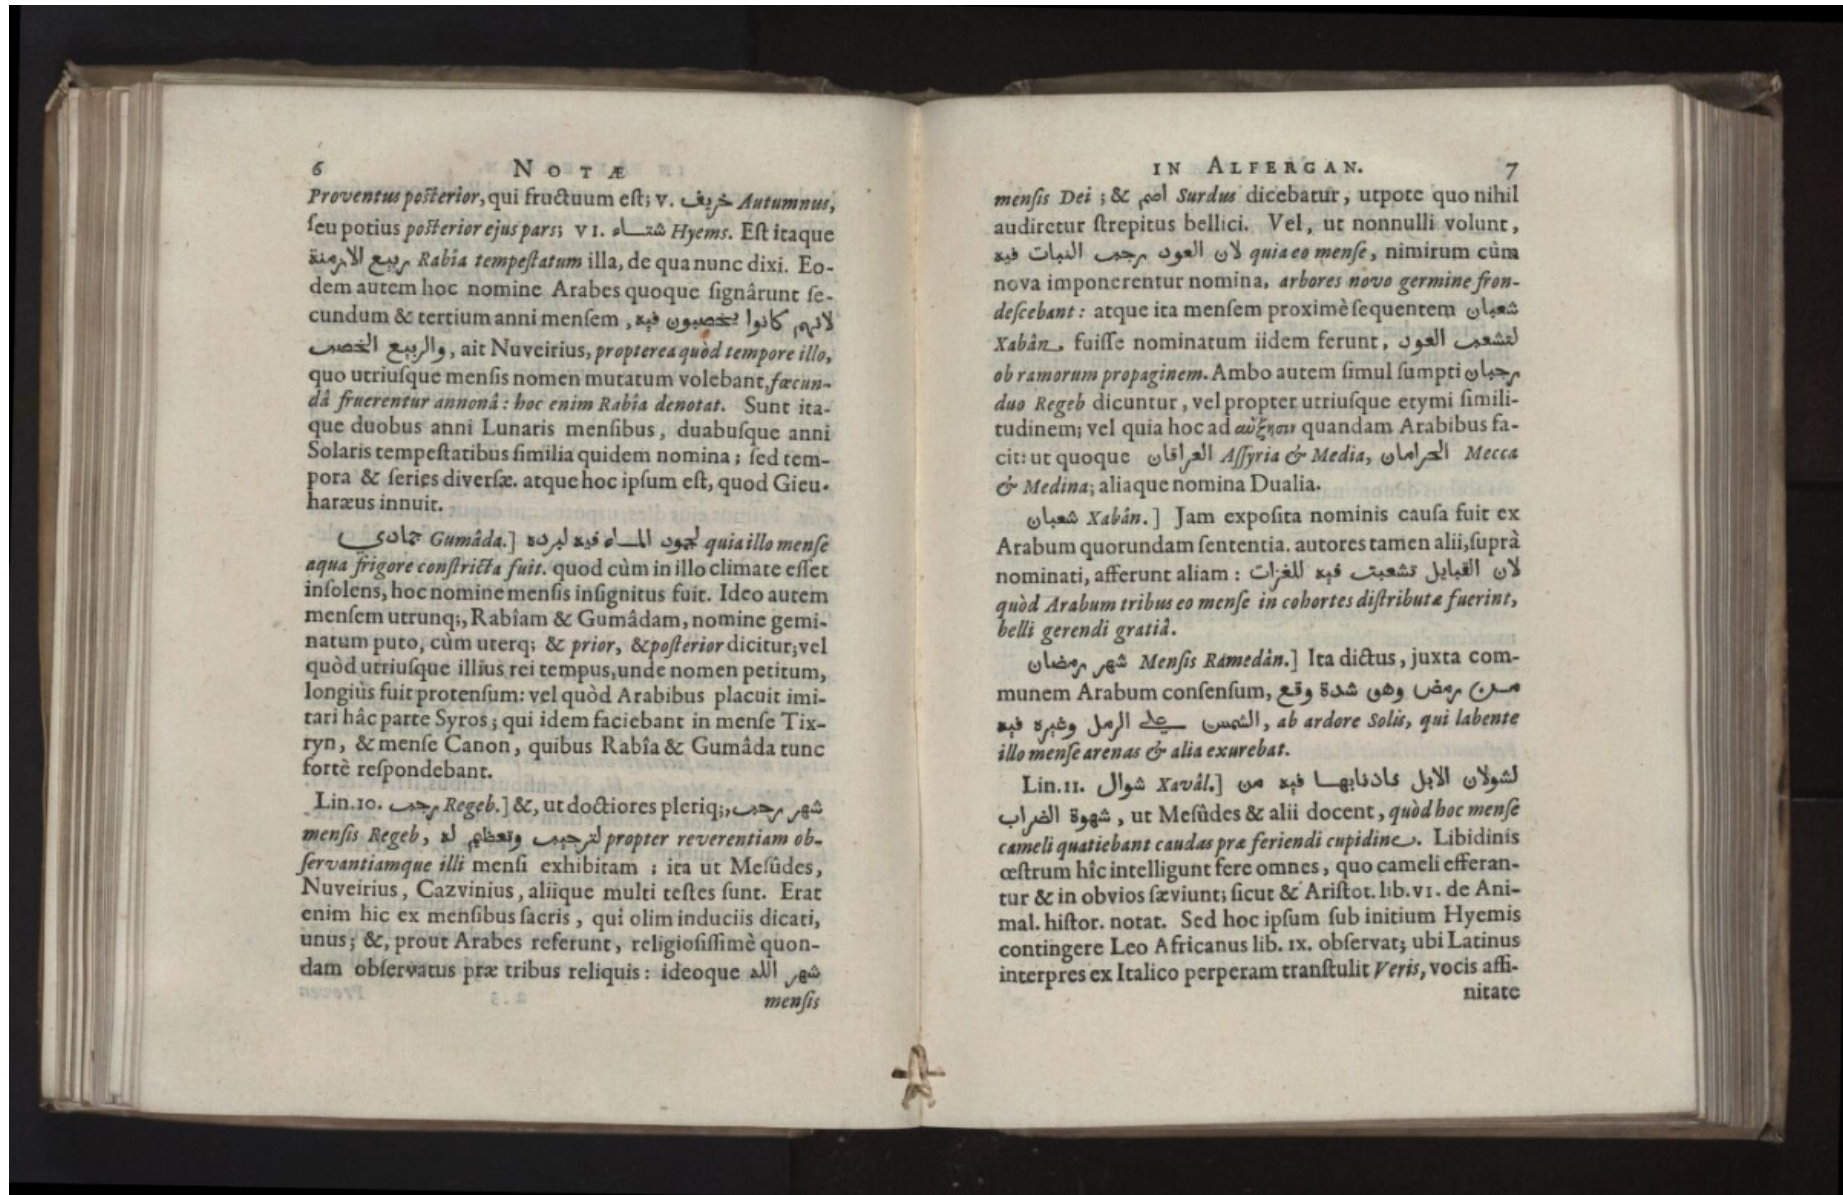 6 NOTÆ
Proventus posterior, qui fructuum eſt; v. خريف Autumnus,
ſeu potius poſterior ejus pars; VI. شتاء Hyems. Eſt itaque
ربيع الازمنة Rabîa tempeſtatum illa, de qua nunc dixi. Eo-
dem autem hoc nomine Arabes quoque ſignârunt ſe-
cundum & tertium anni menſem, لانهم كانوا يخصبون فيه
والربيع الخصب, ait Nuveirius, propterea quòd tempore illo,
quo utriuſque menſis nomen mutatum volebant, fœcun-
dâ fruerentur annonâ: hoc enim Rabîa denotat. Sunt ita-
que duobus anni Lunaris menſibus, duabuſque anni
Solaris tempeſtatibus ſimilia quidem nomina; ſed tem-
pora & ſeries diverſæ. atque hoc ipſum eſt, quod Gieu-
haræus innuit.
جمادي Gumâda.] لجمود الماء فيه لبرده quia illo menſe
aqua frigore conſtricta fuit. quod cùm in illo climate eſſet
inſolens, hoc nomine menſis inſignitus fuit. Ideo autem
menſem utrunq;, Rabîam & Gumâdam, nomine gemi-
natum puto, cùm uterq; & prior, & poſterior dicitur; vel
quòd utriuſque illius rei tempus, unde nomen petitum,
longiùs fuit protenſum: vel quòd Arabibus placuit imi-
tari hâc parte Syros; qui idem faciebant in menſe Tix-
ryn, & menſe Canon, quibus Rabîa & Gumâda tunc
fortè reſpondebant.
Lin. 10. رجب Regeb.] &, ut doctiores pleriq;, شهر رجب
menſis Regeb, لترجيب وتعظيم له propter reverentiam ob-
ſervantiamque illi menſi exhibitam; ita ut Meſûdes,
Nuveirius, Cazvinius, aliique multi teſtes ſunt. Erat
enim hic ex menſibus ſacris, qui olim induciis dicati,
unus; &, prout Arabes referunt, religioſiſſimè quon-
dam obſervatus præ tribus reliquis: ideoque شهر الله
menſis
IN ALFERGAN. 7
menſis Dei; & اصم Surdus dicebatur, utpote quo nihil
audiretur ſtrepitus bellici. Vel, ut nonnulli volunt,
لان العود رجب النبات فيه quia eo menſe, nimirum cùm
nova imponerentur nomina, arbores novo germine fron-
deſcebant: atque ita menſem proximè ſequentem شعبان
Xabân fuiſſe nominatum iidem ferunt, لتشعب العود
ob ramorum propaginem. Ambo autem ſimul ſumpti رجبان
duo Regeb dicuntur, vel propter utriuſque etymi ſimili-
tudinem; vel quia hoc ad αὔξησιν quandam Arabibus fa-
cit: ut quoque العراقان Aſſyria & Media, الحرامان Mecca
& Medina; aliaque nomina Dualia.
شعبان Xabân.] Jam expoſita nominis cauſa fuit ex
Arabum quorundam ſententia. autores tamen alii, ſuprà
nominati, afferunt aliam: لان القبايل تشعبت فيه للغزات
quòd Arabum tribus eo menſe in cohortes diſtributæ fuerint,
belli gerendi gratiâ.
شهر رمضان Menſis Ramedân.] Ita dictus, juxta com-
munem Arabum conſenſum, من رمض وهو شدة وقع
الشمس علي الرمل وغيره فيه, ab ardore Solis, qui labente
illo menſe arenas & alia exurebat.
Lin. 11. شوال Xavâl.] لشولان الابل باذنابها فيه من
شهوة الضراب, ut Meſûdes & alii docent, quòd hoc menſe
cameli quatiebant caudas præ feriendi cupidine. Libidinis
œſtrum hîc intelligunt fere omnes, quo cameli efferan-
tur & in obvios ſæviunt; ſicut & Ariſtot. lib. VI. de Ani-
mal. hiſtor. notat. Sed hoc ipſum ſub initium Hyemis
contingere Leo Africanus lib. IX. obſervat; ubi Latinus
interpres ex Italico perperam tranſtulit Veris, vocis affi-
nitate